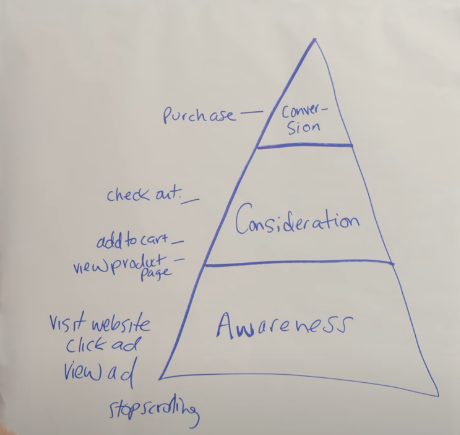 Purchase
Conver-
sion
check out
Consideration
add to cart
view product
page
Awareness
Visit website
click ad
view ad
stop scrolling